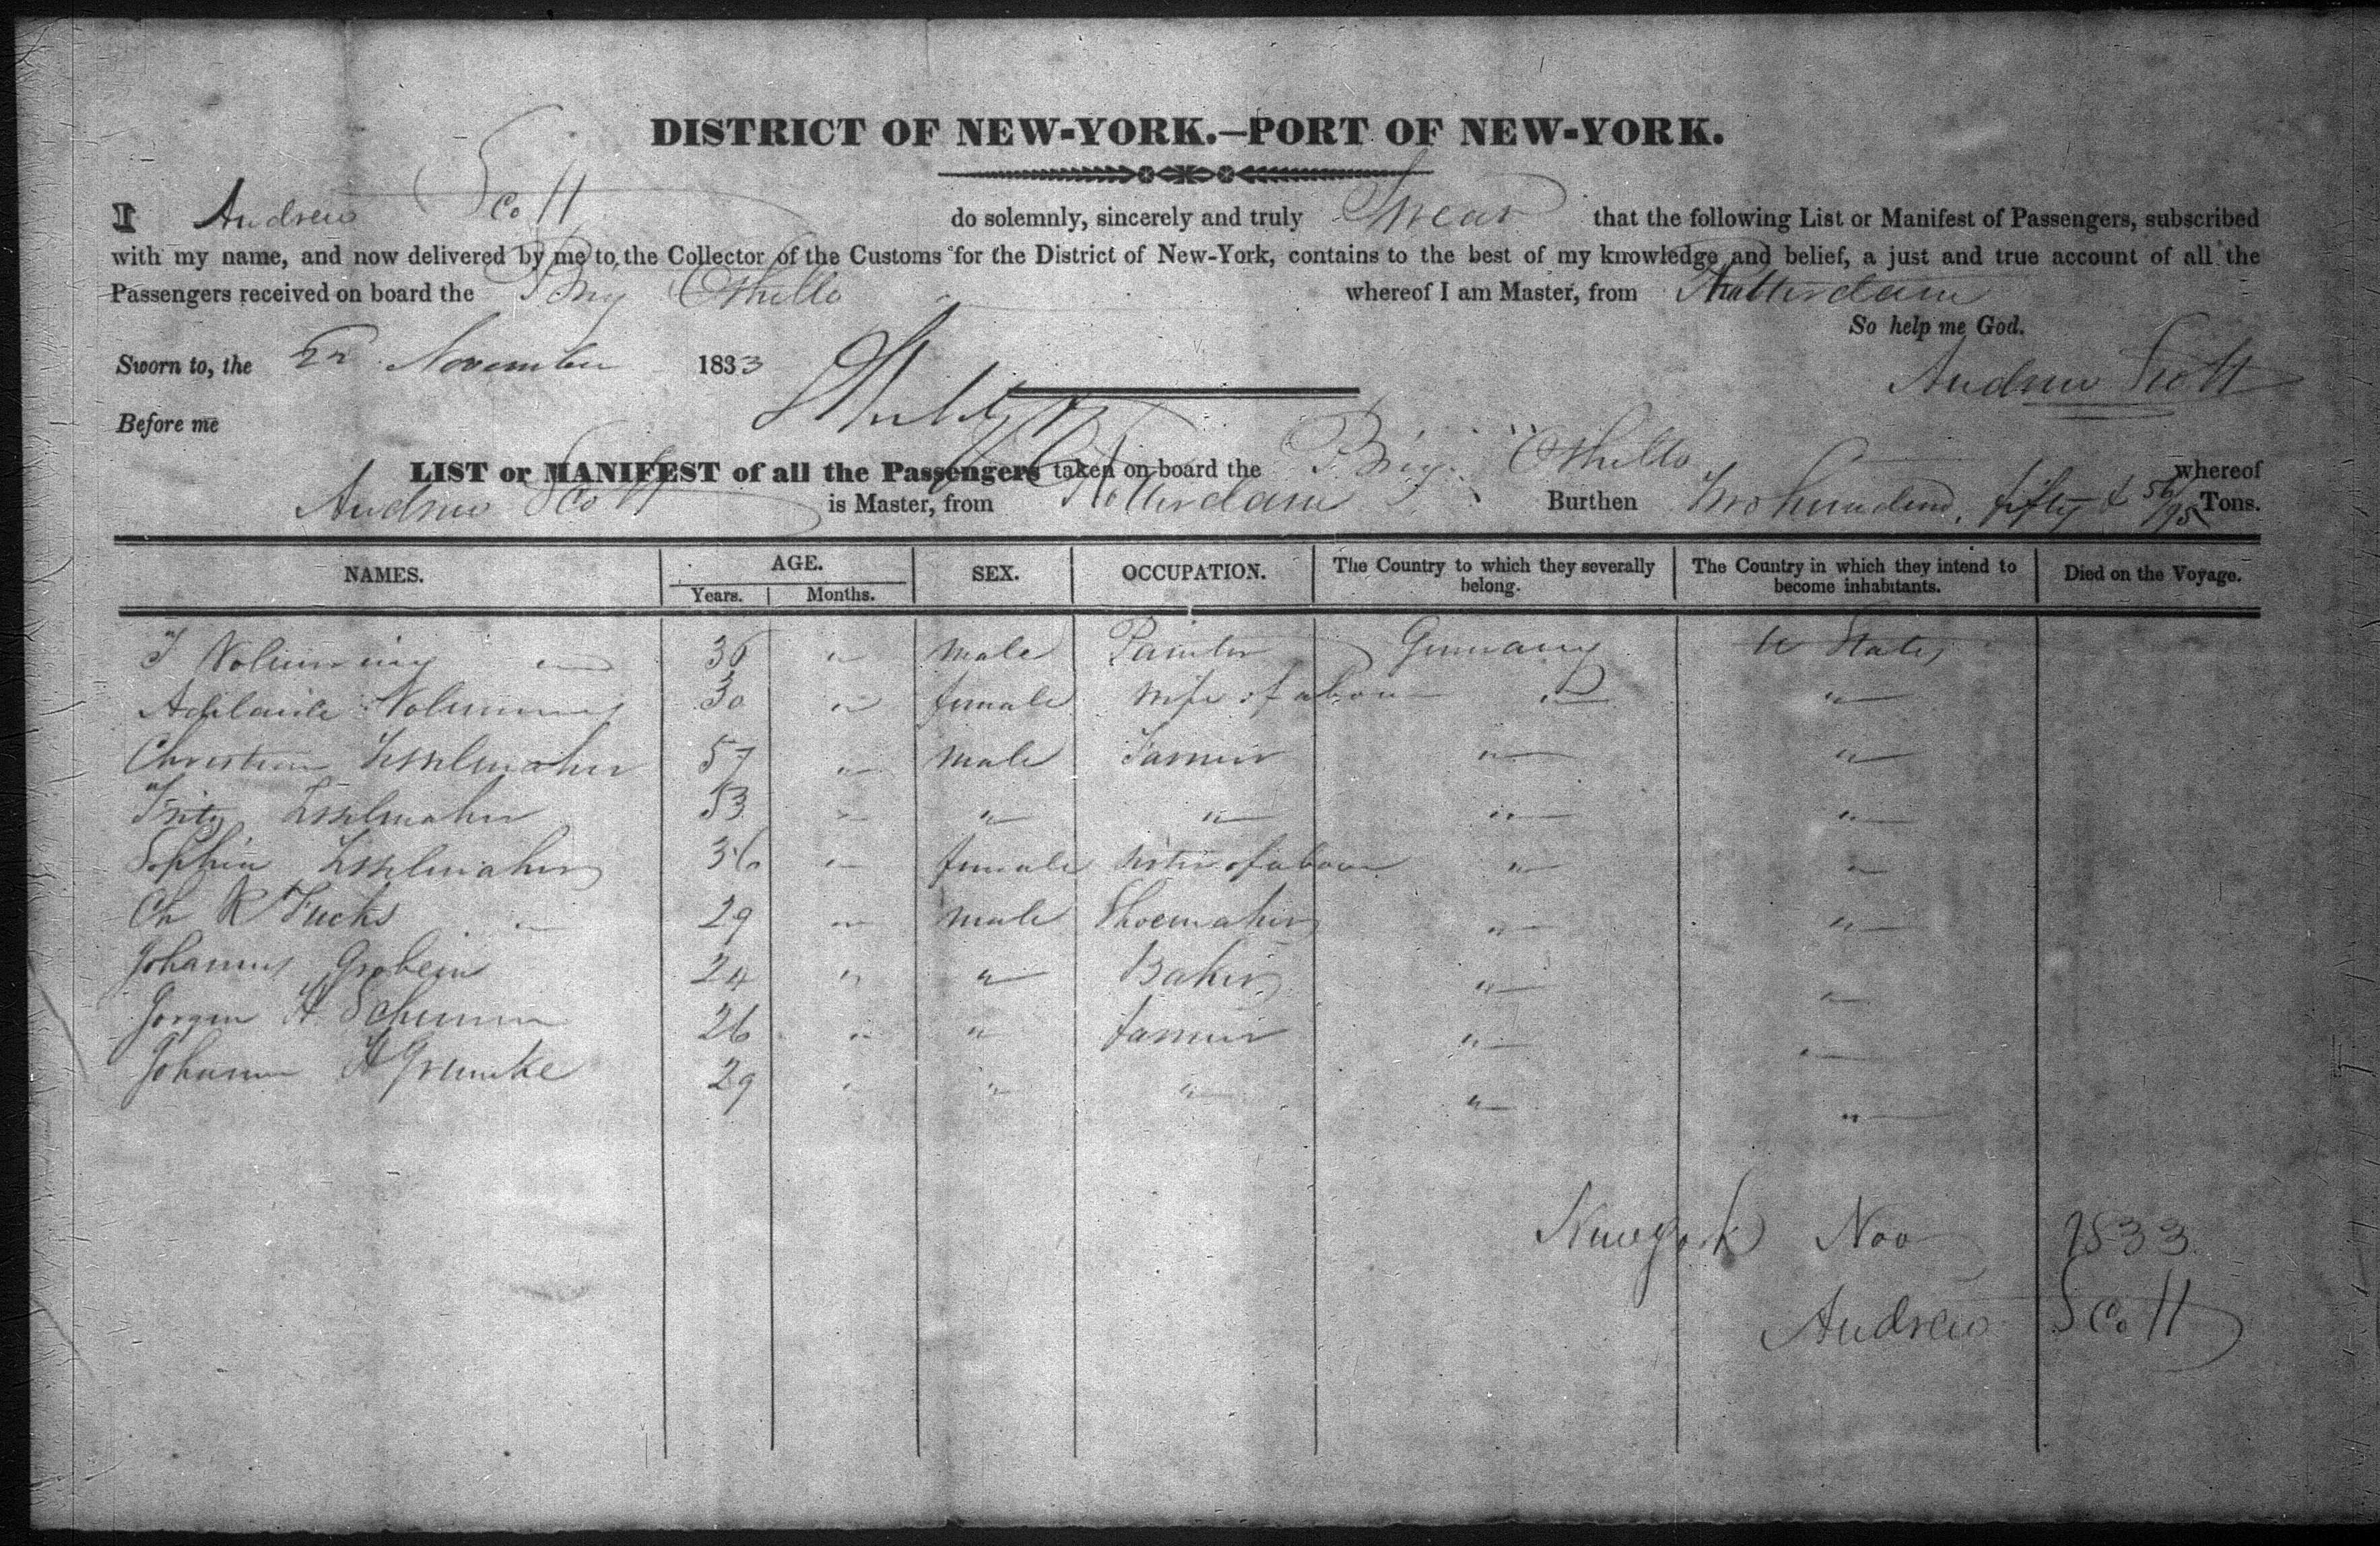 DISTRICT OF NEW-YORK.—PORT OF NEW-YORK.
I Andrew Scott do solemnly, sincerely and truly Swear that the following List or Manifest of Passengers, subscribed
with my name, and now delivered by me to the Collector of the Customs for the District of New-York, contains to the best of my knowledge and belief, a just and true account of all the
Passengers received on board the Brig Othello whereof I am Master, from Rotterdam
So help me God.
Sworn to, the 22 November 1833
Andrew Scott
Before me
LIST or MANIFEST of all the Passengers taken on board the Brig Othello whereof
Andrew Scott is Master, from Rotterdam Burthen Two hundred, fifty & 56/95 Tons.
NAMES. AGE. SEX. OCCUPATION. The Country to which they severally belong. The Country in which they intend to become inhabitants. Died on the Voyage.
Years. Months.
36 " male Painter Germany U States
Adelaide 30 " female wife of above " "
Christian 57 " male Farmer " "
Fritz 53 " " " " "
Sophia 36 " female sister of above " "
Ch R Fucks 29 " male Shoemaker " "
Johannes Grobein 24 " " Baker " "
Jorgen H 26 " " farmer " "
Johann H Grumke 29 " " " " "
New York Nov 1833
Andrew Scott